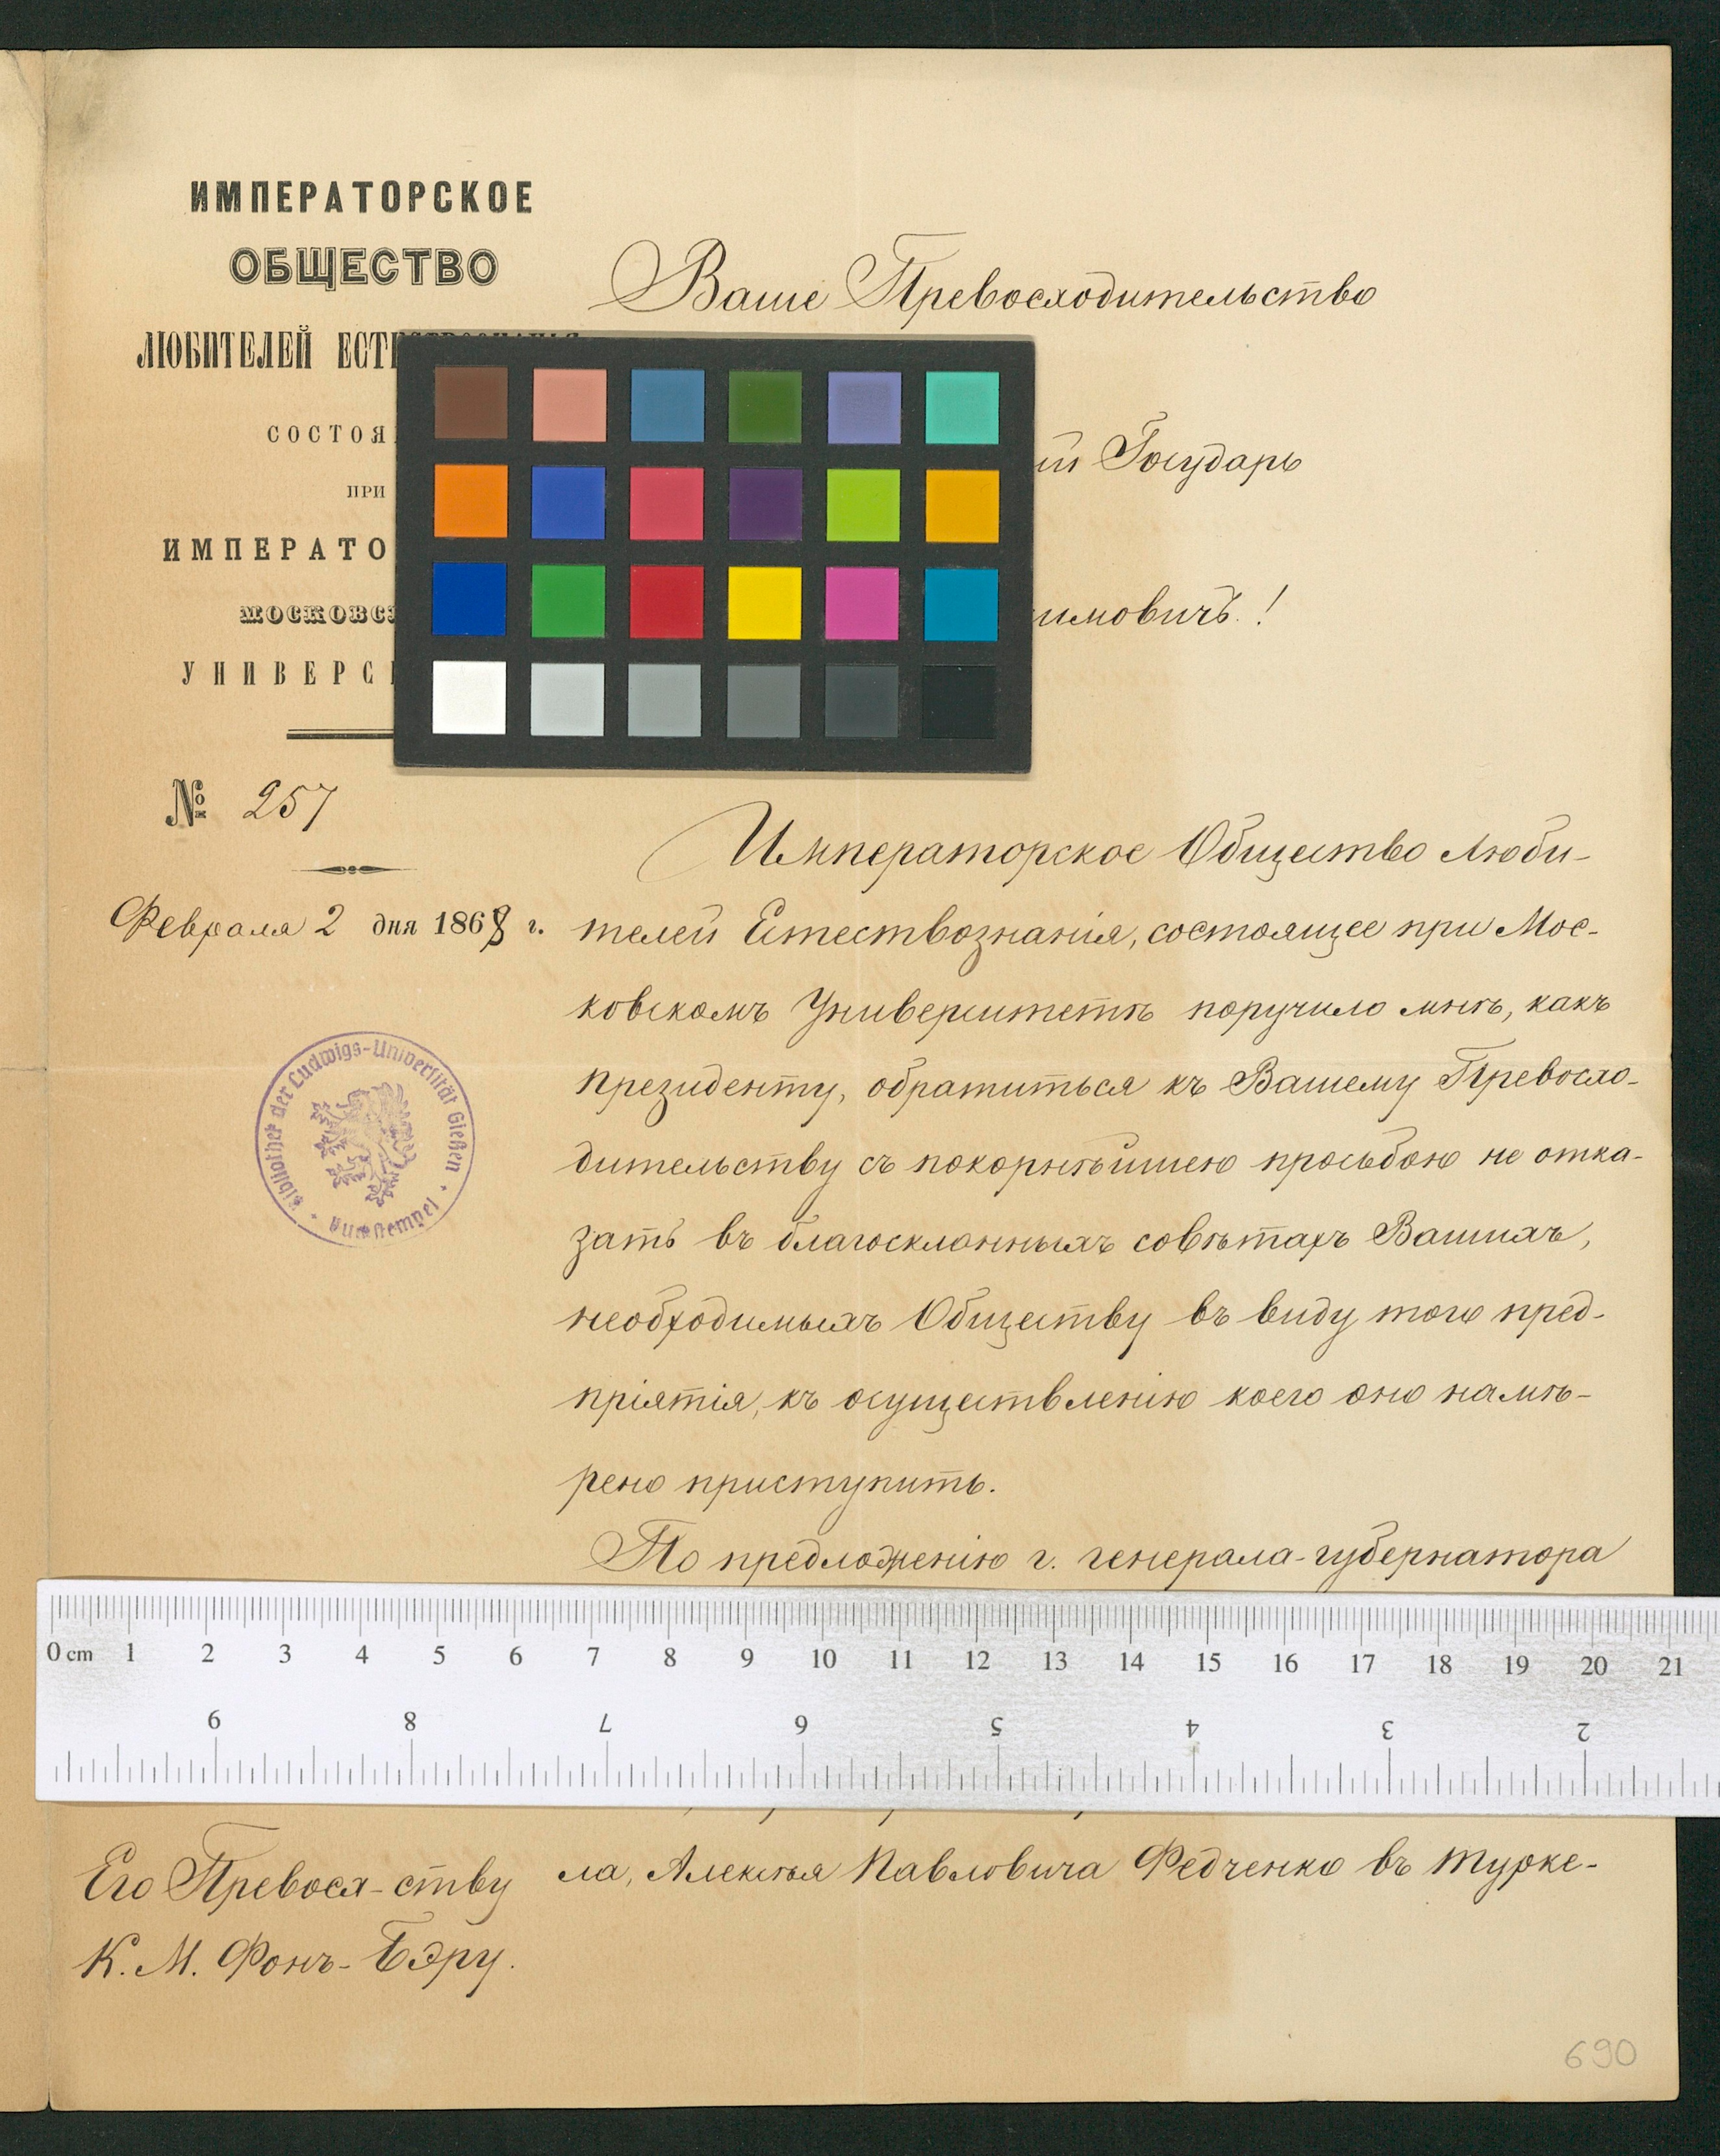 ИМПЕРАТОРСКОЕ
ОБЩЕСТВО
ЛЮБИТЕЛЕЙ
СОСТОЯ
ПРИ
ИМПЕРАТО
МОСКОВС
УНИВЕРС
№ 257
Февраля 2 дня 1868 г.
Ваше Превосходительство
ій Государь
имовичъ!
Императорское Общество Люби-
телей Естествознанія, состоящее при Мос-
ковскомъ Университетѣ поручило мнѣ, какъ
президенту, обратиться къ Вашему Превосхо-
дительству съ покорнѣйшею просьбою не отка-
зать въ благосклонныхъ совѣтахъ Вашихъ,
необходимыхъ Обществу въ виду того пред-
пріятія, къ осуществленію коего оно намѣ-
рено приступить.
По предложенію г. генерала-губернатора
ла, Алексѣя Павловича Федченко въ Турке-
Его Превосх-ству
К. М. Фонъ-Бэру.
Bibliothek der Ludwigs-Universität Gießen
Buchstempel
0 cm 1 2 3 4 5 6 7 8 9 10 11 12 13 14 15 16 17 18 19 20 21
9 8 7 6 5 4 3 2
690